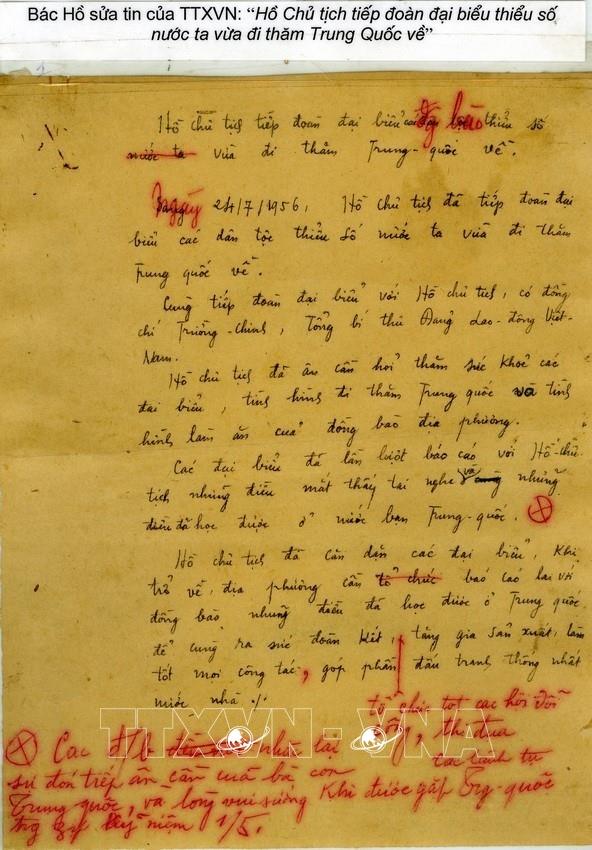 Bác Hồ sửa tin của TTXVN: "Hồ Chủ tịch tiếp đoàn đại biểu thiểu số
nước ta vừa đi thăm Trung Quốc về"
Hồ chủ tịch tiếp đoàn đại biểu đg bào thiểu số
nước ta vừa đi thăm Trung-quốc về.
Ngày 24/7/1956, Hồ chủ tịch đã tiếp đoàn đại
biểu các dân tộc thiểu số nước ta vừa đi thăm
Trung quốc về.
Cùng tiếp đoàn đại biểu với Hồ chủ tịch, có đồng
chí Trường-chinh, Tổng bí thư Đảng Lao-động Việt-
Nam.
Hồ chủ tịch đã ân cần hỏi thăm sức khoẻ các
đại biểu, tình hình đi thăm Trung quốc và tình
hình làm ăn của đồng bào địa phương.
Các đại biểu đã lần lượt báo cáo với Hồ-chủ-
tịch những điều mắt thấy tai nghe và những
điều đã học được ở nước bạn Trung-quốc.
Hồ chủ tịch đã căn dặn các đại biểu, khi
trở về địa phương cần tổ chức báo cáo lại với
đồng bào những điều đã học được ở Trung quốc,
để cùng ra sức đoàn kết, tăng gia sản xuất, làm
tốt mọi công tác, góp phần đấu tranh thống nhất
nước nhà ./.
tổ chức tốt các hội đổi
công, thi đua
TTXVN - VNA
Các đ/b nhắc lại
sự đón tiếp ân cần của bà con
Trung quốc, và lòng vui sướng khi được gặp Trg-quốc
kỷ niệm 1/5.